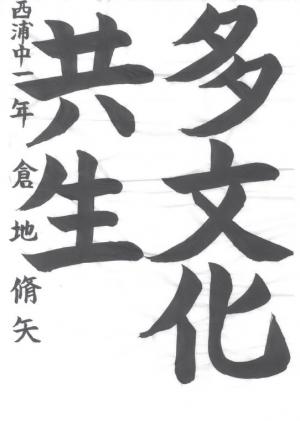 多文化
共生
西浦中一年 倉地脩矢